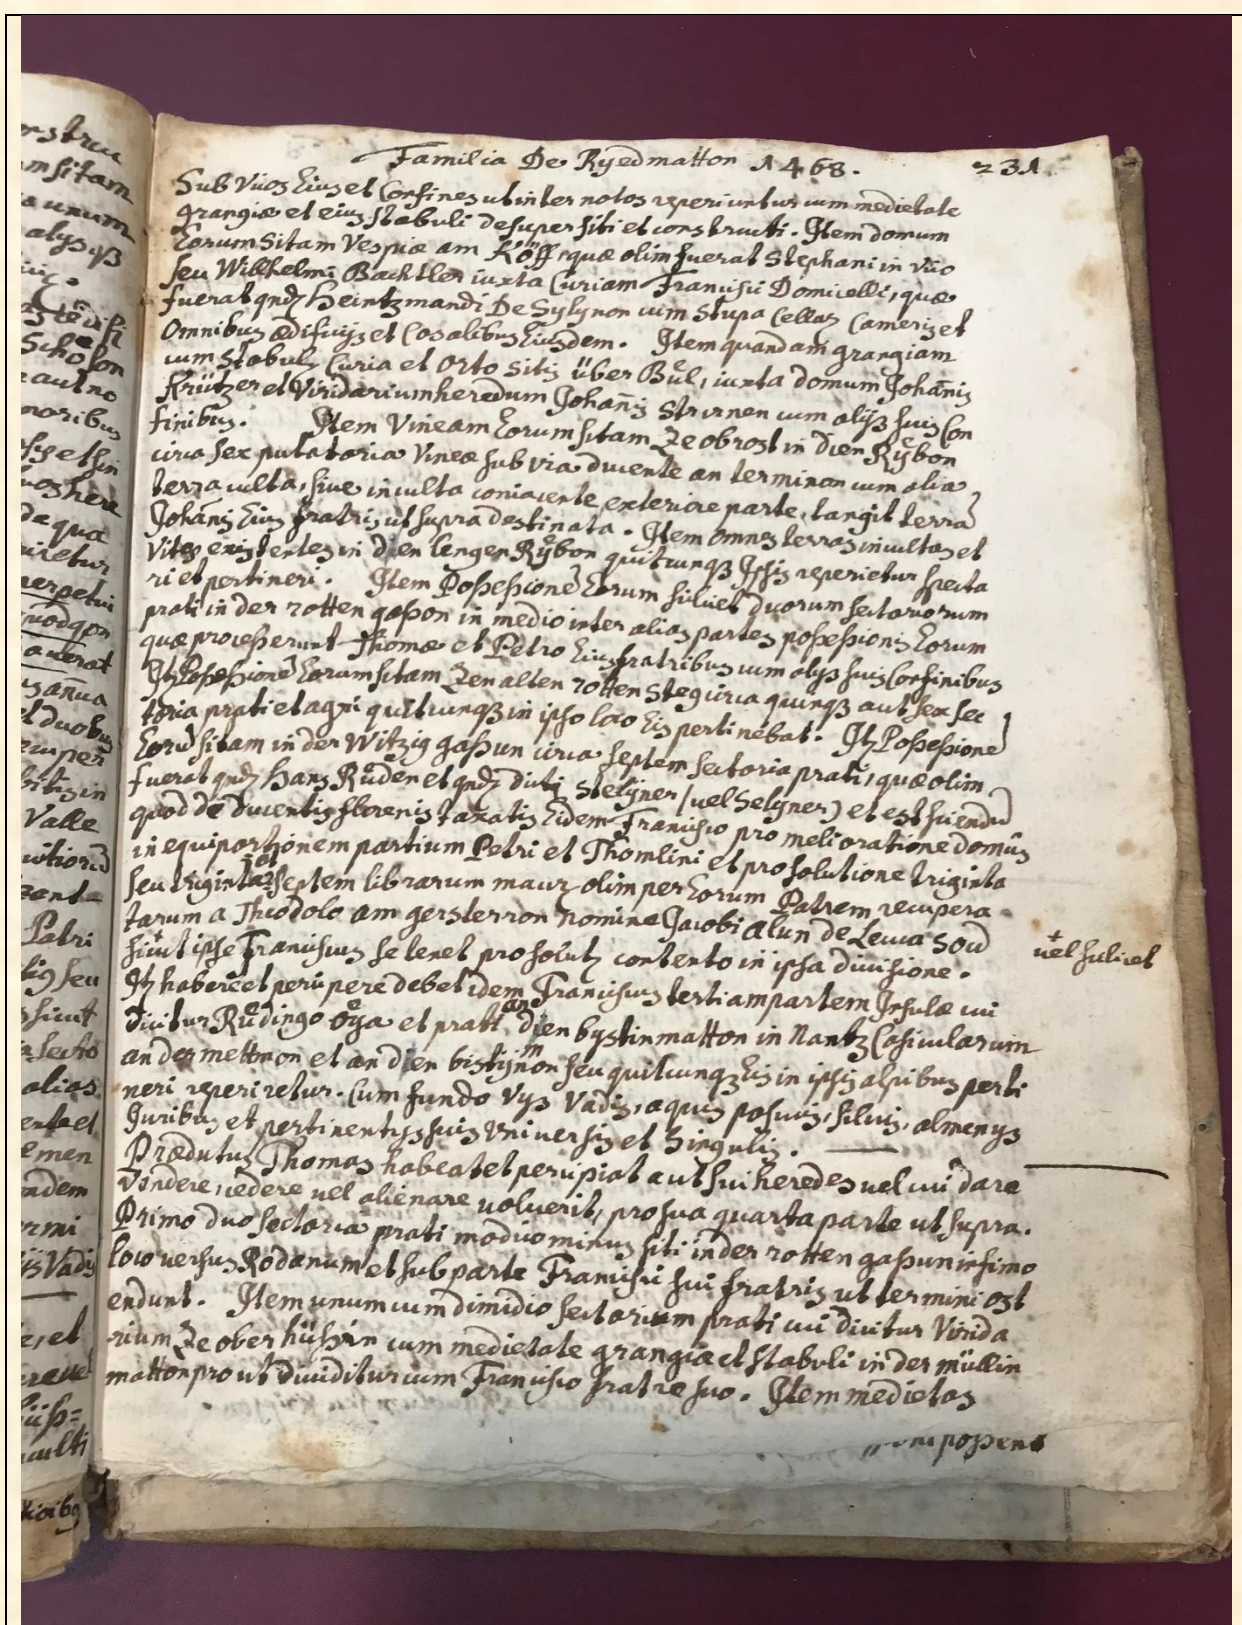 Familia De Ryedmatton 1468. 231.
Sub Viios Eius et Confines ut inter notos reperiuntur cum medietate
grangiæ et eius stabuli desuper siti et constructi. Item domum
Eorum sitam Vespiæ am Köff, quæ olim fuerat Stephani in Viio
seu Willhelmi Bachtler iuxta Curiam Francisci Domicelli, quæ
fuerat qndȝ Heintzmandi De Sylynon cum stupa Cellar Cameris et
Omnibus ædificijs et Casalibus Eiusdem. Item quandam grangiam
cum stabulȝ Curia et Orto sitis über Bül, iuxta domum Johanis
Krützer et Viridarium heredum Johanis Strirnen cum alijs suis Con
finibus. Item Vineam Eorum sitam Ze obrost in dien Rÿbon
circa sex putatoria Vineæ sub via ducente an terminon cum alia
terra culta, sive inculta coniacente, exteriore parte, tangit terra
Johanis Eius fratris, ut supra destinata. Item omnes terras incultas et
Vites existentes in dien lengen Rÿbon quitcunqȝ Ipsis reperietur specta
ri et pertineri. Item Possessione Eorum silicet duorum sectoriorum
prati in der rotten gasson in medio inter alias partes possessionis Eorum
quæ processerunt Thomæ et Petro Eius fratribus cum alijs suis Confinibus
Itȝ Possessione Eorum sitam Zen alten rotten Steg circa quinqȝ aut sex sec
toria prati et agri quitcunqȝ in ipso loco Eis pertinebat. Itȝ Possessione
Eoru sitam in der Witzig gassun circa septem sectoria prati, quæ olim
fuerat qndȝ Hans Rüden et qndȝ dicti Stelyner (uel Selyner) et est sciendu
quod de ducentis florenis taxatis Eidem Francisco pro melioratione domus
in equiportionem partium Petri et Thomlini et pro solutione triginta
seu triginta septem librarum maurȝ olim per Eorum Patrem recupera
tarum a Theodolo am gersterron nomine Jacobi alun de Leuca Soud
sicut + ipse Franciscus se tenet pro solutȝ contento in ipsa divisione. + uel silicet
Itȝ habere et percipere debet idem Franciscus tertiam partem Insulæ cui
dicitur Rüdingo öya et prati an dien bystinmatton in Nantz Casicularum
an der mettmon et an dien bistijnon seu quitcunqȝ Eis in ipsis alpibus perti
neri reperiretur. Cum fundo Vijs Vadis, aquis pascuis, silvis, almenijs
Juribus et pertinentijs suis Vniversis et Singulis.
Prædictus Thomas habeat et percipiat aut sui heredes uel cui dare
Vendere, cedere uel alienare uoluerit, pro sua quarta parte ut supra.
Primo duo sectoria prati modico minus siti in der rotten gassun infimo
loco uersus Rodanum et sub parte Francisci sui fratris ut termini ost
endunt. Item unum cum dimidio sectorium prati cui dicitur Virida
rium Ze ober hüssin cum medietate grangiæ et stabuli in der müllin
matton prout dividitur cum Francisco fratre suo. Item medietas